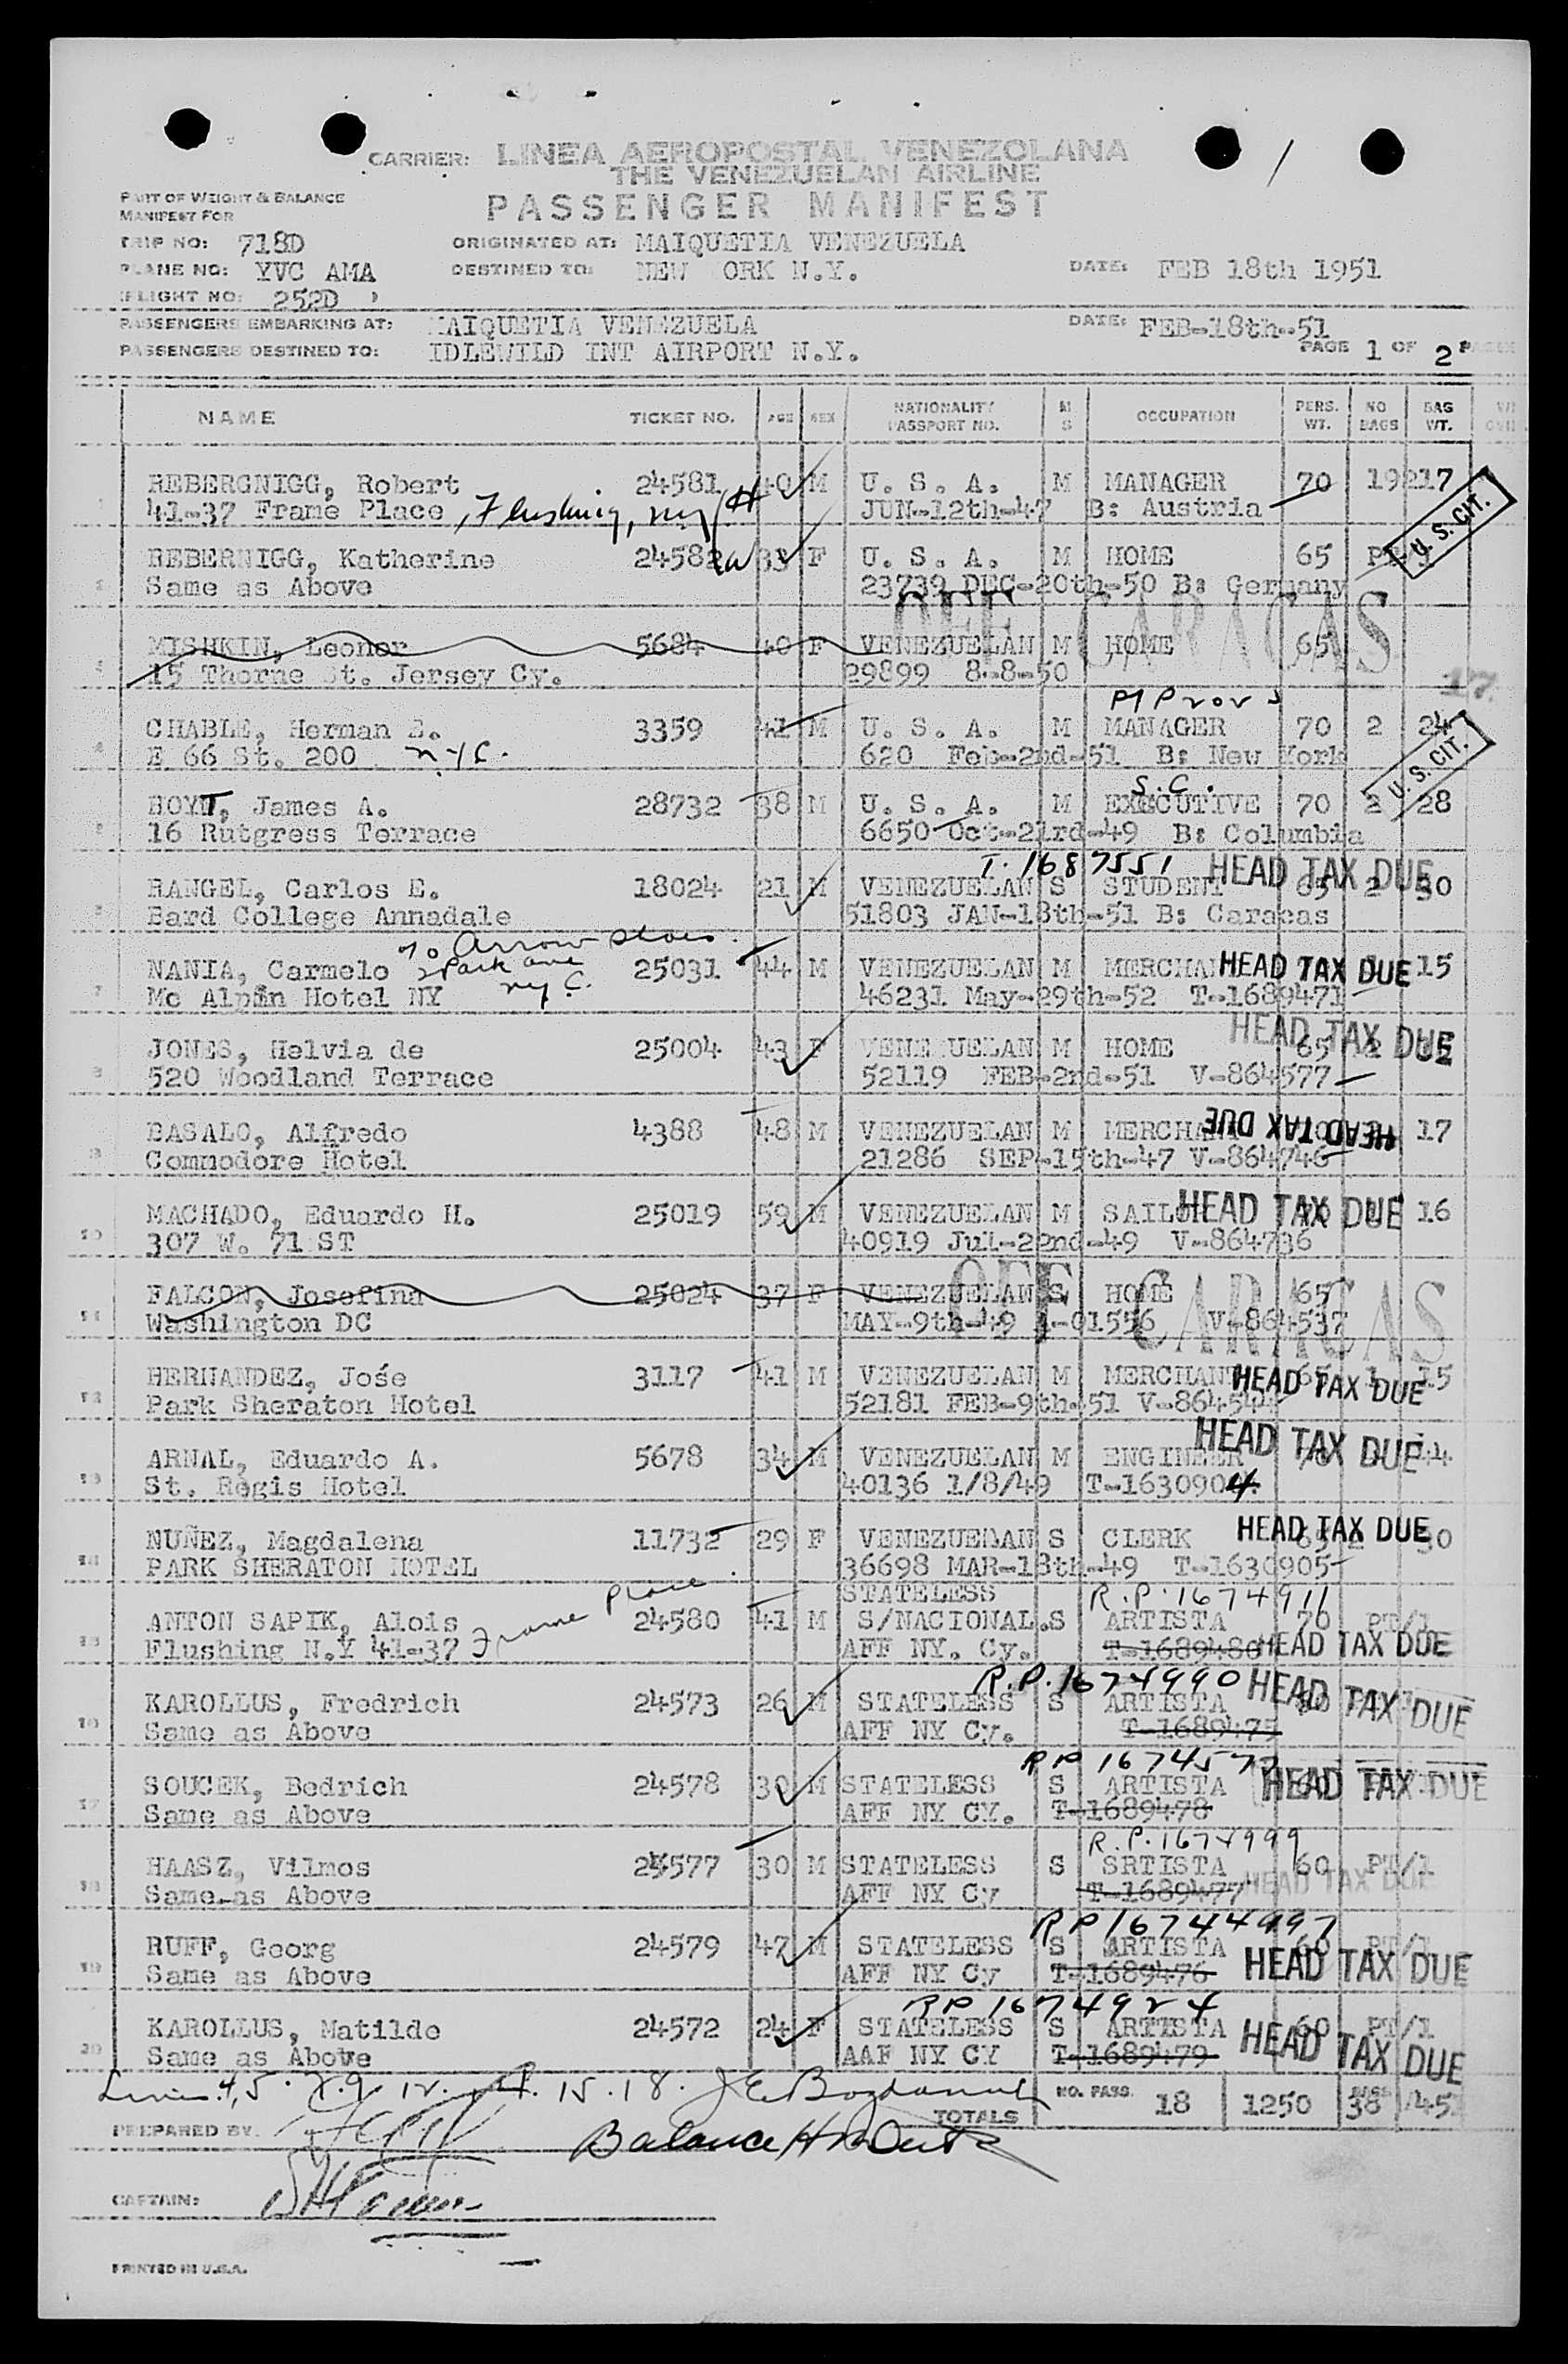 CARRIER: LINEA AEROPOSTAL VENEZOLANA
THE VENEZUELAN AIRLINE
PART OF WEIGHT & BALANCE
MANIFEST FOR
PASSENGER MANIFEST
TRIP NO: 718D ORIGINATED AT: MAIQUETIA VENEZUELA
PLANE NO: YVC AMA DESTINED TO: NEW ORK N.Y. DATE: FEB 18th 1951
FLIGHT NO: 252D
PASSENGERS EMBARKING AT: MAIQUETIA VENEZUELA DATE: FEB-18th-51
PASSENGERS DESTINED TO: IDLEWILD INT AIRPORT N.Y. PAGE 1 OF 2
NAME TICKET NO. AGE SEX NATIONALITY PASSPORT NO. M S OCCUPATION PERS. WT. NO BAGS BAG WT.
1 REBERGNIGG, Robert 24581 40 M U. S. A. M MANAGER 70 19217
41-37 Frame Place, Flushing, NY JUN-12th-47 B: Austria
U. S. CIT.
2 REBERNIGG, Katherine 24582 33 F U. S. A. M HOME 65
Same as Above 23739 DEC-20th-50 B: Germany
OFF CARACAS
MISHKIN, Leonor 5684 40 F VENEZUELAN M HOME 65
15 Thorne St. Jersey Cy. 29899 8-8-50
17
4 CHABLE, Herman E. 3359 41 M U. S. A. M MANAGER 70 2 24
E 66 St. 200 NYC. 620 Feb-2nd-51 B: New York
U. S. CIT.
S.C.
HOYT, James A. 28732 38 M U. S. A. M EXECUTIVE 70 2 28
16 Rutgress Terrace 6650 Oct-21rd-49 B: Columbia
T. 1687551 HEAD TAX DUE
RANGEL, Carlos E. 18024 21 M VENEZUELAN S STUDENT 65 2 30
Bard College Annadale 51803 JAN-18th-51 B: Caracas
% Arrow Shoes
2 Park Ave
NY C.
7 NANIA, Carmelo 25031 44 M VENEZUELAN M HEAD TAX DUE 15
Mc Alpin Hotel NY 46231 May-29th-52 T-1689471
HEAD TAX DUE
JONES, Helvia de 25004 43 F VENE UELAN M HOME 65
520 Woodland Terrace 52119 FEB-2nd-51 V-864577
BASALO, Alfredo 4388 48 M VENEZUELAN M MERCHANT HEAD TAX DUE 17
Commodore Hotel 21286 SEP-15th-47 V-864746
10 MACHADO, Eduardo H. 25019 59 M VENEZUELAN M SAILOR HEAD TAX DUE 16
307 W. 71 ST 40919 Jul-22nd-49 V-864736
OFF CARACAS
FALCON, Josefina 25024 37 F VENEZUELAN S HOME 65
Washington DC MAY-9th-49 A-01556 V-864537
12 HERNANDEZ, Jośe 3117 41 M VENEZUELAN M MERCHANT 65 1 15
Park Sheraton Hotel 52181 FEB-9th-51 HEAD TAX DUE
HEAD TAX DUE
13 ARNAL, Eduardo A. 5678 34 M VENEZUELAN M ENGINEER
St. Regis Hotel 40136 1/8/49 T-1630904
NUÑEZ, Magdalena 11732 29 F VENEZUELAN S CLERK HEAD TAX DUE 30
PARK SHERATON HOTEL 36698 MAR-18th-49 T-1630905
STATELESS R.P. 1674911
ANTON SAPIK, Alois 24580 41 M S/NACIONAL.S ARTISTA 70 PT/1
Flushing N.Y 41-37 Frame Place AFF NY. Cy. T-1689480 HEAD TAX DUE
R.P. 1674990 HEAD TAX DUE
KAROLLUS, Fredrich 24573 26 M STATELESS S ARTISTA
Same as Above AFF NY Cy. T-1689475
SOUCEK, Bedrich 24578 30 M STATELESS S ARTISTA HEAD TAX DUE
Same as Above AFF NY CY. T-1689478
R.P. 1674999
HAASZ, Vilmos 24577 30 M STATELESS S SRTISTA 60 PT/1
Same-as Above AFF NY Cy T-1689477 HEAD TAX DUE
RP 16744997
RUFF, Georg 24579 47 M STATELESS S ARTISTA 60 PT/1
Same as Above AFF NY Cy T-1689476 HEAD TAX DUE
RP 1674924
20 KAROLLUS, Matilde 24572 24 F STATELESS S ARTISTA 60 PT/1
Same as Above AAF NY CY T-1689479 HEAD TAX DUE
15. 18.
TOTALS NO. PASS. 18 1250 BAGS 38
PREPARED BY.
Balance
CAPTAIN:
PRINTED IN U.S.A.